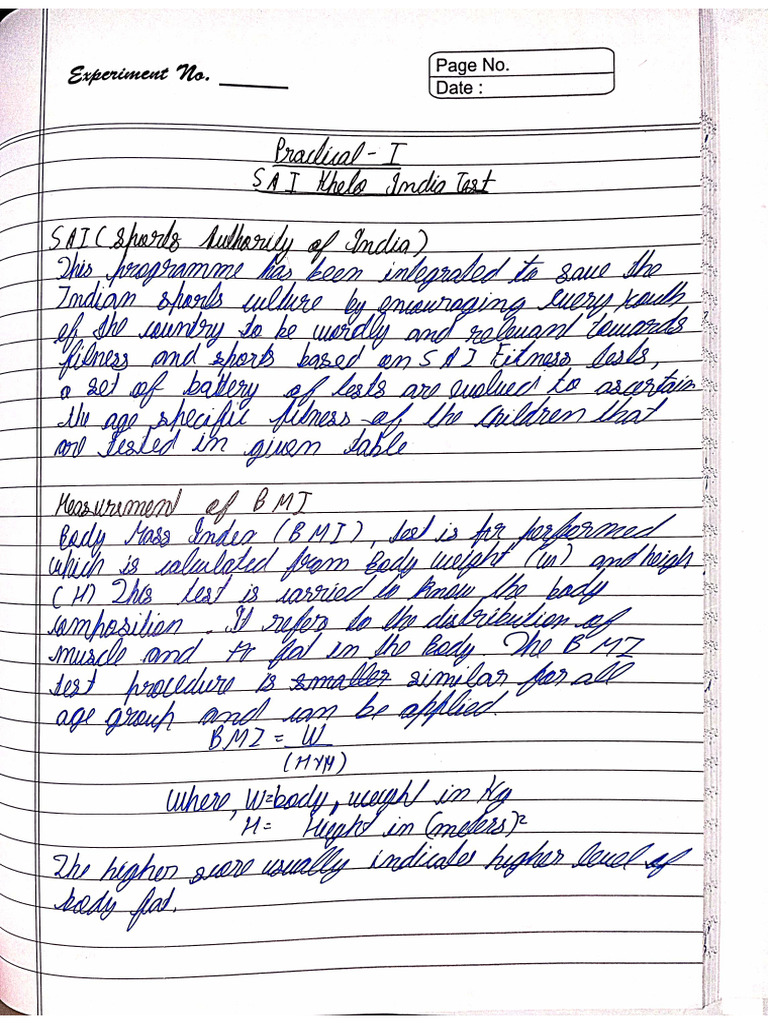 Experiment No.
Page No.
Date :
Practical - I
SAI Khelo India Test
SAI (Sports Authority of India)
This programme has been integrated to save the
Indian sports culture by encouraging every youth
of the country to be wordly and relevant towards
fitness and sports based on SAI Fitness tests,
a set of battery of tests are evolved to ascertain
the age specific fitness of the children that
are tested in given table
Measurment of BMI
Body Mass Index (BMI), test is performed
which is calculated from body weight (w) and heigh
(H) This test is carried to know the body
composition. It refers to the distribution of
muscle and fat in the body. The BMI
test procedure is smaller similar for all
age group and can be applied.
BMI = W
(H×H)
Where, W=body, weight in Kg
H= Height in (meters)²
The higher score usually indicates higher level of
body fat.